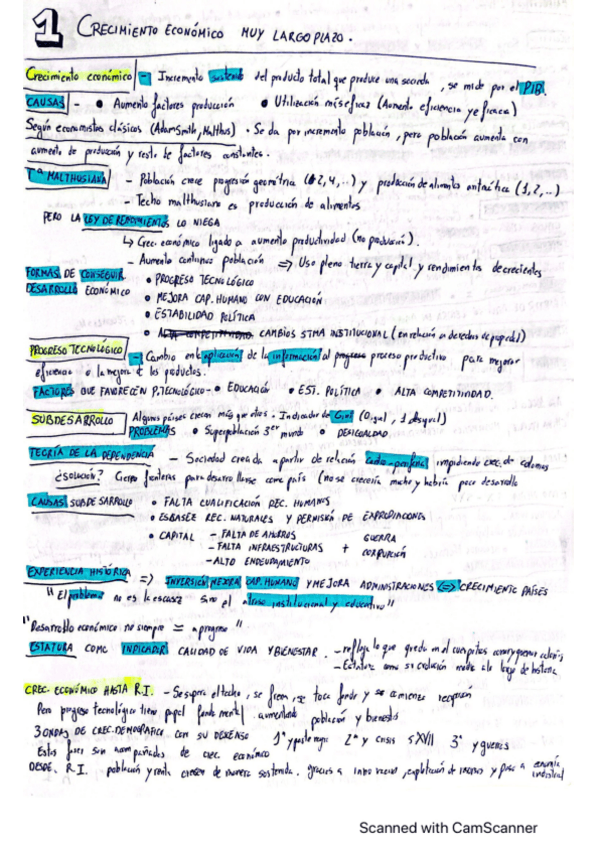 1 CRECIMIENTO ECONÓMICO MUY LARGO PLAZO.
Crecimiento económico - Incremento sostenido del producto total que produce una sociedad, se mide por el PIB.
CAUSAS - • Aumento factores producción • Utilización más eficaz (Aumento eficiencia y eficacia)
Según economistas clásicos (Adam Smith, Malthus) • Se da por incremento población, pero población aumenta con
aumento de producción y resto de factores constantes.
Tª MALTHUSIANA - Población crece progresión geométrica (2, 4, ...) y producción de alimentos aritmética (1, 2, ...)
- Techo malthusiano es producción de alimentos
PERO LA LEY DE RENDIMIENTOS LO NIEGA
↳ Crec. económico ligado a aumento productividad (no producción).
- Aumento continuo población => Uso pleno tierra y capital y rendimientos decrecientes
FORMAS DE CONSEGUIR • PROGRESO TECNOLÓGICO
DESARROLLO ECONÓMICO • MEJORA CAP. HUMANO CON EDUCACIÓN
• ESTABILIDAD POLÍTICA
• CAMBIOS STMA INSTITUCIONAL (en relación a derechos de propiedad)
PROGRESO TECNOLÓGICO - Cambio en aplicación de la información al proceso productivo para mejorar
eficiencia o la mejora de los productos.
FACTORES QUE FAVORECEN P. TECNOLÓGICO - • EDUCACIÓN • EST. POLÍTICA • ALTA COMPETITIVIDAD.
SUBDESARROLLO Algunos países crecen más que otros. Indicador de Gini (0 igual, 1 desigual)
PROBLEMAS • Superpoblación 3er mundo • DESIGUALDAD
TEORÍA DE LA DEPENDENCIA - Sociedad creada a partir de relación centro-periferia impidiendo crec. de colonias
¿SOLUCIÓN? Cierre fronteras para desarrollarse como país (no se crecería mucho y habría poco desarrollo
CAUSAS SUBDESARROLLO • FALTA CUALIFICACIÓN REC. HUMANOS
• ESCASEZ REC. NATURALES Y EXPROPIACIONES
• CAPITAL - FALTA DE AHORROS GUERRA
- FALTA INFRAESTRUCTURAS + CORRUPCIÓN
- ALTO ENDEUDAMIENTO
EXPERIENCIA HISTÓRICA => INVERSIÓN MEJORA CAP. HUMANO Y MEJORA ADMINISTRACIONES <=> CRECIMIENTO PAÍSES
"El problema no es la escasez sino el atraso institucional y educativo"
"Desarrollo económico no siempre = a progreso".
ESTATURA COMO INDICADOR CALIDAD DE VIDA Y BIENESTAR. - refleja lo que queda en el cuerpo
- Estatura como su evolución a lo largo de historia
CREC. ECONÓMICO HASTA R.I. - Se supera el techo, se frena, se toca fondo y se comienza recuperación
Pero progreso tecnológico tiene papel fundamental aumentando población y bienestar
3 ONDAS DE CREC. DEMOGRÁFICO CON SU DESCENSO 1ª y peste negra 2ª y crisis S XVII 3ª y guerras
Estas fases son acompañadas de crec. económico
DESDE R.I. población y renta crecen de manera sostenida. gracias a innovaciones, explotación de recursos y paso a energía
industrial
Scanned with CamScanner